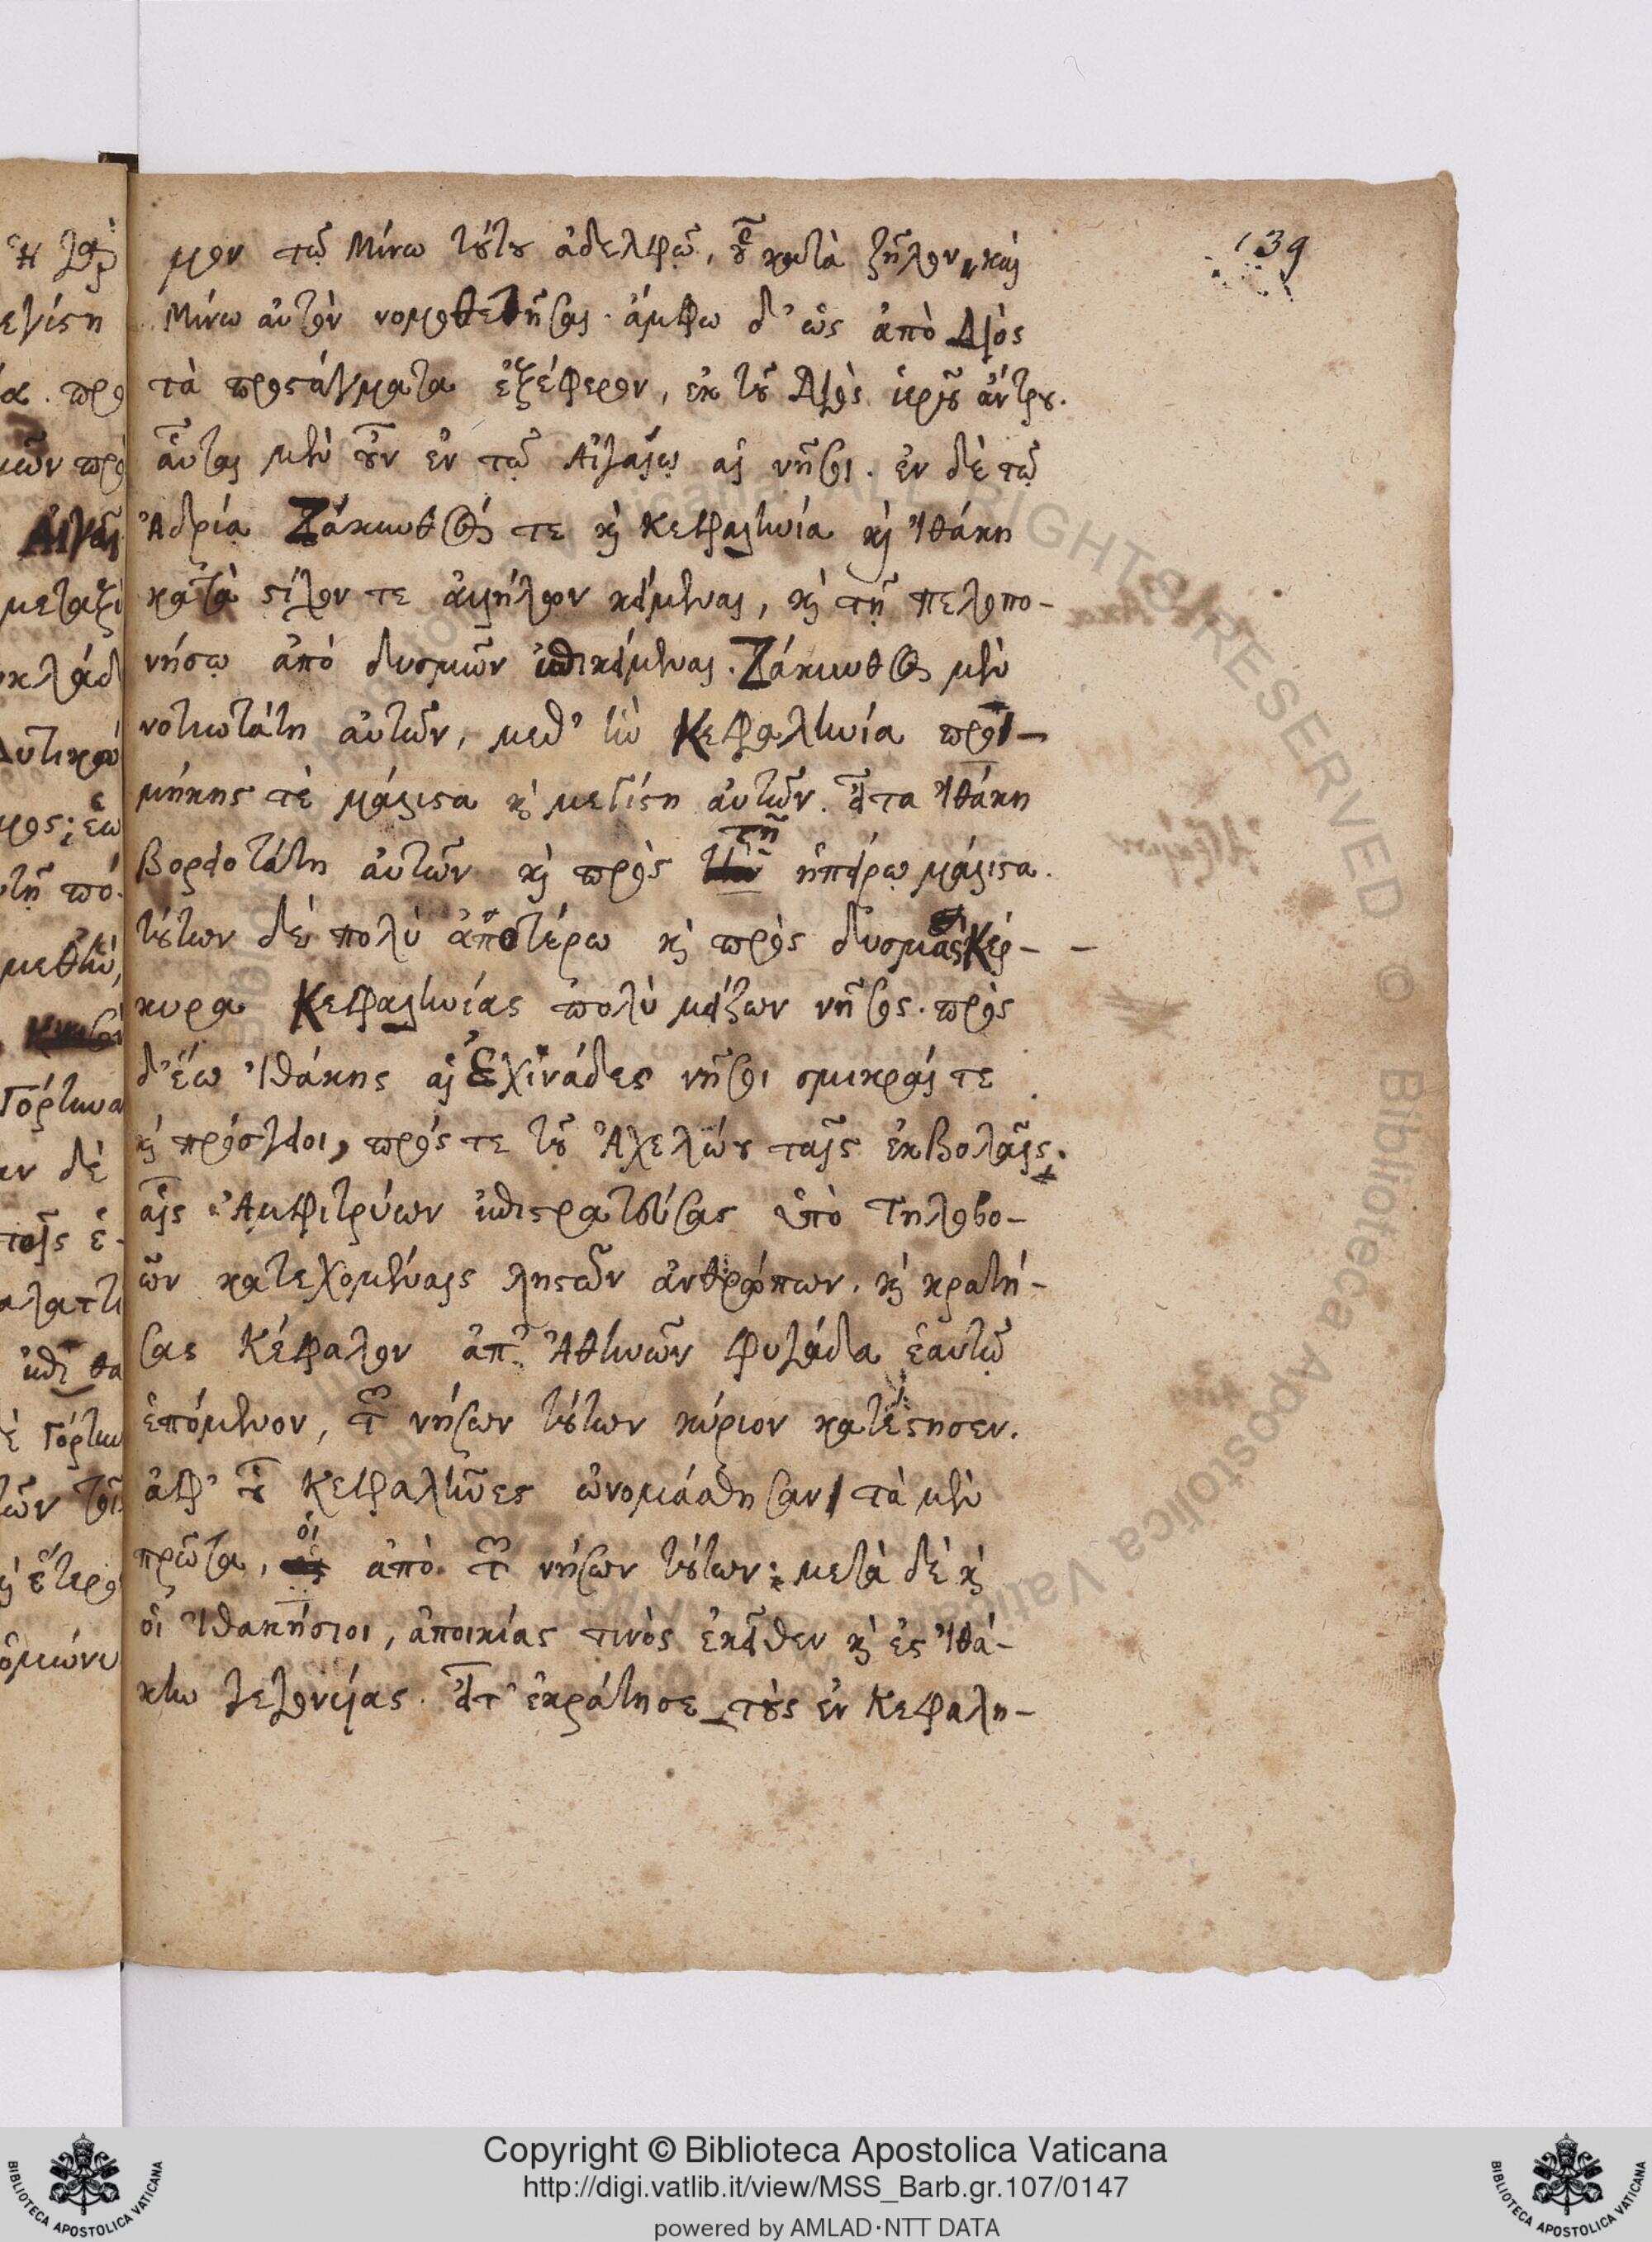 139
μον τῷ Μίνω τούτου ἀδελφῷ, οὗ κατὰ ζῆλον, καὶ
Μίνω αὐτὸν νομοθετῆσαι. ἄμφω δ' ὡς ἀπὸ Διὸς
τὰ προστάγματα ἐξέφερον, ἐκ τοῦ Διὸς ἱεροῦ ἄντρου.
αὗται μὲν οὖν ἐν τῷ Αἰγαίῳ αἱ νῆσοι. ἐν δὲ τῷ
Ἀδρίᾳ Ζάκυνθός τε καὶ Κεφαληνία καὶ Ἰθάκη
κατὰ στίχον τε ἀλλήλων κείμεναι, καὶ τῇ Πελοπο-
νήσῳ ἀπὸ δυσμῶν ἐπικείμεναι. Ζάκυνθος μὲν
νοτιωτάτη αὐτῶν, μεθ' ἣν Κεφαλληνία προ-
μήκης τὲ μάλιστα καὶ μεγίστη αὐτῶν. εἶτα Ἰθάκη
βορειοτάτη αὐτῶν καὶ πρὸς τῇ ἠπείρῳ μάλιστα.
τούτων δὲ πολὺ ἀπωτέρω καὶ πρὸς δυσμὰς Κέρ-
κυρα Κεφαληνίας πολὺ μείζων νῆσος. πρὸς
δ' ἕω Ἰθάκης αἱ Ἐχινάδες νῆσοι σμικραί τε
καὶ πρόσγειοι, πρός τε τοῦ Ἀχελώου ταῖς ἐκβολαῖς.
αἷς Ἀμφιτρύων ἐπιστρατεύσας ὑπὸ Τηλεβο-
ῶν κατεχομέναις λῃστῶν ἀνθρώπων. καὶ κρατή-
σας Κέφαλον ἀπ' Ἀθηνῶν φυγάδα ἑαυτῷ
ἑπόμενον, τῶν νήσων τούτων κύριον κατέστησεν.
ἀφ' οὗ Κεφαλλῆνες ὠνομάσθησαν τὰ μὲν
πρῶτα, οἱ ἀπὸ τῶν νήσων τούτων: μετὰ δὲ καὶ
οἱ Ἰθακήσιοι, ἀποικίας τινὸς ἐκεῖθεν καὶ ἐς Ἰθά-
κην γεγονυίας. εἶτ' ἐκράτησε τοὺς ἐν Κεφαλη-
Copyright © Biblioteca Apostolica Vaticana
http://digi.vatlib.it/view/MSS_Barb.gr.107/0147
powered by AMLAD·NTT DATA